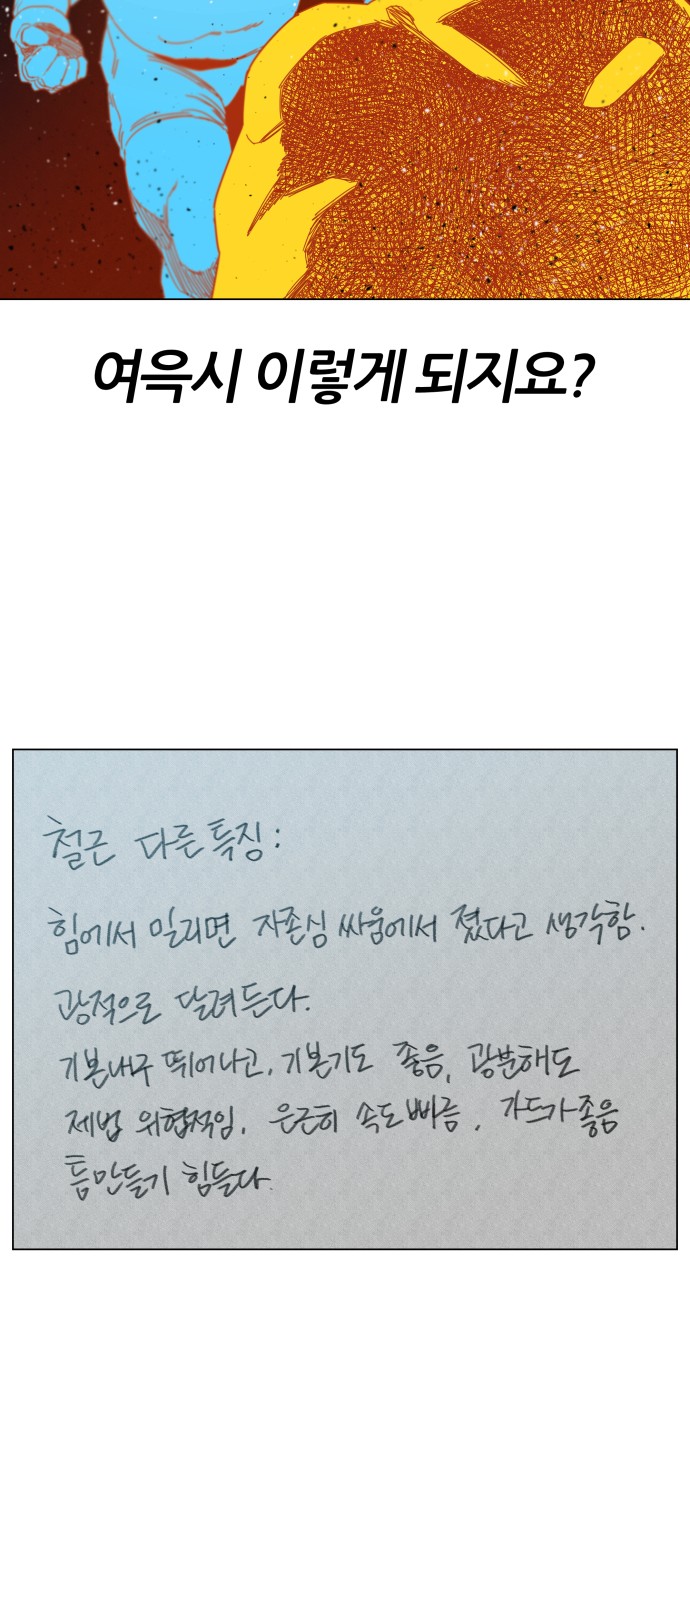 여윽시 이렇게 되지요?
철근 다른 특징:
힘에서 밀리면 자존심 싸움에서 졌다고 생각함.
광적으로 달려든다.
기본내구 뛰어나고, 기본기도 좋음, 광분해도
제법 위협적임. 은근히 속도 빠름, 가드가 좋음
틈만들기 힘들다.